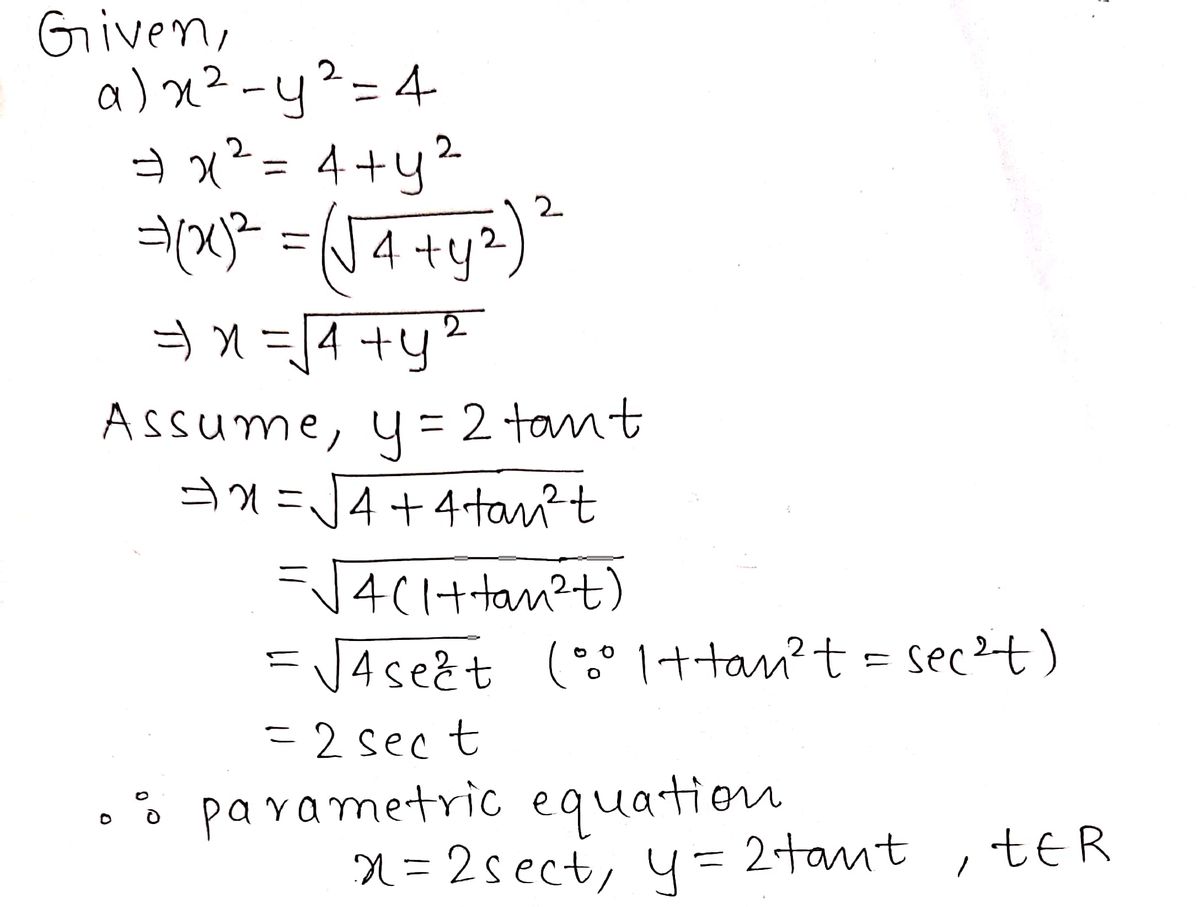 Given,
a) x² - y² = 4
⇒ x² = 4 + y²
⇒ (x)² = (√4 + y²)²
⇒ x = √4 + y²
Assume, y = 2 tan t
⇒ x = √4 + 4tan²t
= √4(1 + tan²t)
= √4sec²t (∵ 1 + tan²t = sec²t)
= 2 sec t
∴ parametric equation
x = 2sect, y = 2tant , t ∈ R